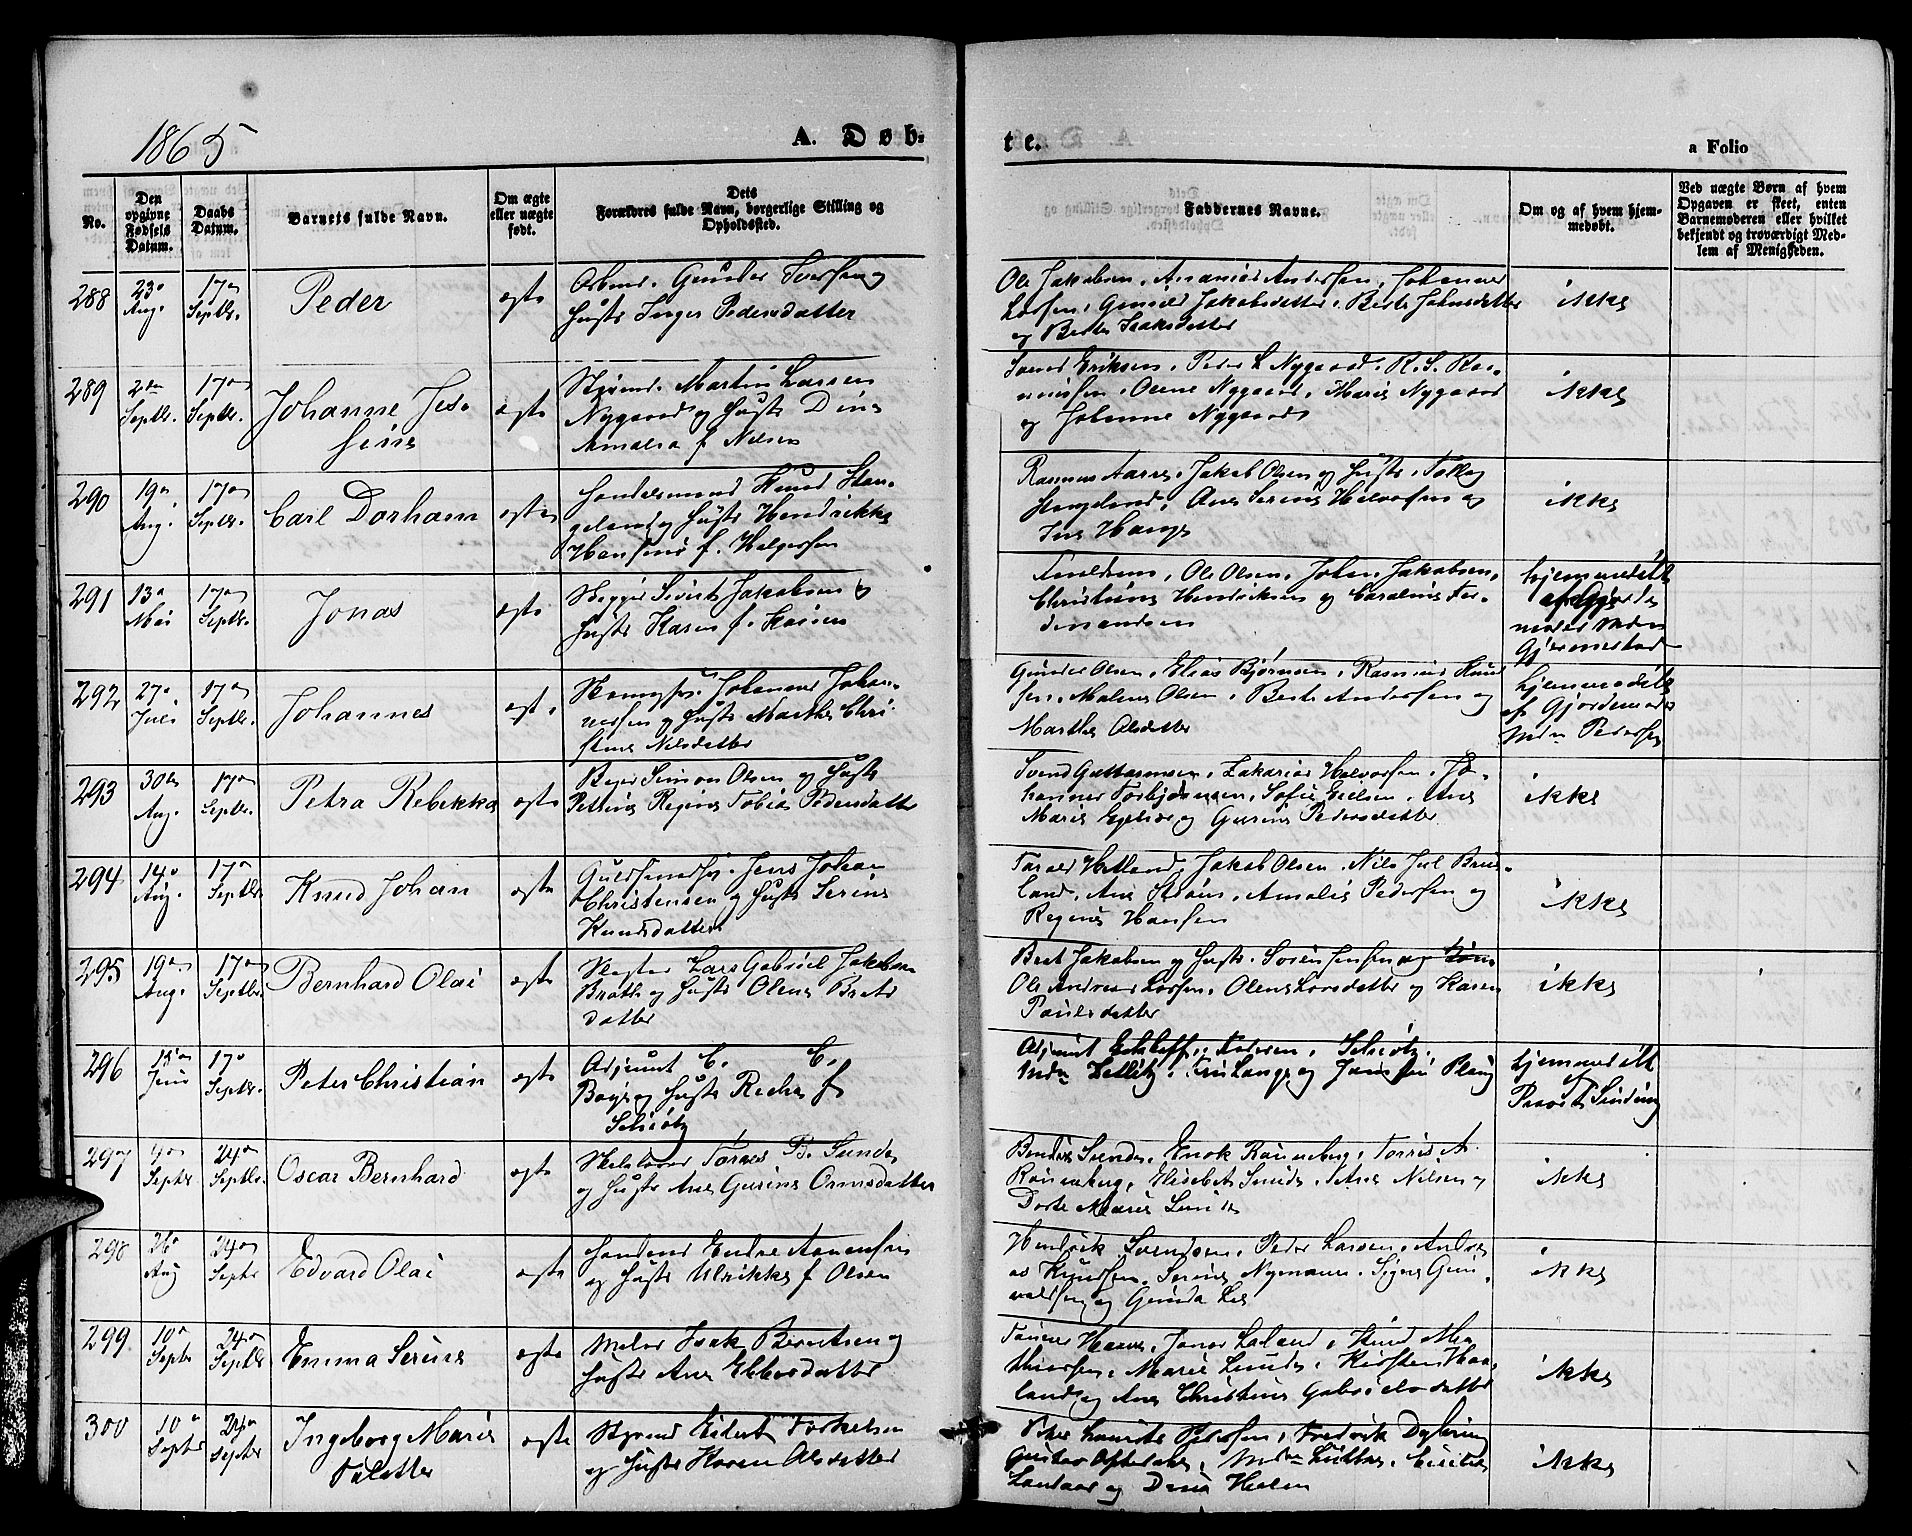 1865
A. Døb-
te.
a Folio
No.
Den opgivne Fødsels Datum.
Daabs Datum.
Barnets fulde Navn.
Om ægte eller uægte født.
Dets Forældres fulde Navn, borgerlige Stilling og Opholdssted.
Faddernes Navne.
Om og af hvem hjem-
medøbt.
Ved uægte Børn af hvem
Opgaven er skeet, enten
Barnemoderen eller hvilket
bekjendt og troværdigt Med-
lem af Menigheden.
288 23 Aug. 17 Septbr. Peder ægte
Gunder Iversen og
Hustr Inger Pedersdatter
Ole Jakobsen, Ananias Andersen, Johannes
Larsen, Gunild Jakobsdatter, Berte Johnsdatter
og Berte Isaksdatter
ikke
289 2den Septbr. 17 Septbr. Johanne Jes-
sine
ægte
Styrmd. Martin Larsen
Nygaard og Hustr Dina
Amalia f. Nilsen
Svend Eriksen, Peder L Nygaard, R. S. Ras-
mussen, Olene Nygaard, Marie Nygaard
og Johanne Nygaard
ikke
290 19 Aug. 17 Septbr. Carl Dorham ægte
Handelsmand Knud Stan-
geland og Hustr Hendrikke
Hansine f. Helgesen
Rasmus Aarre, Jakob Olsen og Hustr,
Stangeland, Ane Serine Halvorsen og
Ine Hauge
ikke
291 13 Mai 17 Septbr. Jonas ægte
Skipper Sivert Jakobsen og
Hustr Karen f. Kaisen
Forældrene, Ole Olsen, Johan Jakobsen,
Christiane Hendriksen og Caroline Fer-
dinandsen
hjemmedøbt
af Gjorde
moder Mdm
Gjermestad
292 27 Juli 17 Septbr. Johannes ægte
Johannes Johan-
nessen og Hustr Marthe Chri-
stine Nilsdatter
Gunder Olsen, Elias Bjørnsen, Rasmus Knud
sen, Malene Olsen, Berte Andersen og
Marthe Olsdatter
hjemmedøbt
af Gjordemoder
Mdm Pedersen
293 30te Aug. 17 Septbr. Petra Rebekka ægte
Simon Olsen og Hustr
Petrine Regine Tobia Pedersdatter
Svend Guttormsen, Zakarias Halvorsen, Jo-
hannes Torbjørnsen, Sofie Eielsen, Ane
Marie og Gurine Pedersdatter
ikke
294 14 Aug. 17 Septbr. Knud Johan ægte
Guldsmedsv. Jens Johan
Christensen og Hustr Serine
Knudsdatter
Tarald Hetland, Jakob Olsen, Nils Juel Bru-
land, Ane Strøm, Amalie Pedersen og
Regine Hansen
ikke
295 19 Aug. 17 Septbr. Bernhard Olai ægte
Slagter Lars Gabriel Jakobsen
Brath og Hustr Olene Brets
datter
Bret Jakobsen og Hustr,
Ole Andreas Larsen, Olene Larsdatter og Karen
Paulsdatter
ikke
296 Juni 17 Septbr. Peter Christian ægte
Adjunkt C. C.
Boye og Hustr Rikke f
Schiøtz
Adjunct Schiøtz,
Mdm og Jomfru Plaug
hjemmedøbt
af
Provst Sinding
297 Septbr. 24 Septbr. Oscar Bernhard ægte
Tønnes B. Sunde
og Hustr Ane Gurine Ormsdatter
Bendix Sunde, Enok Rønneberg, Torris A
Rønneberg, Elisabet Sunde, Ane Nilsen og
Dorte Marie Sunde
ikke
298 26 Aug 24 Septbr Edvard Olai ægte
Handmd Endre Aanensen
og Hustr Ulrikke f Olsen
Hendrik Svendsen, Peder Larsen, Andre
as Knudsen, Serine Nymann, Signe Gun-
valdsen og Gunda Lie
ikke
299 10 Septbr 24 Septbr Emma Serine ægte
Maler Isak Berntsen og
Hustr Ane Ebbesdatter
Tønnes Hanne, Jonas Laland, Knud Ma-
thiassen, Marie Lunde, Kirsten Haa-
land og Ane Christine Gabrielsdatter
ikke
300 10 Septbr 24 Septbr Ingeborg Marie
Talette
ægte
Styrmd Eidert Torkelsen
og Hustr Karen Olsdatter
Pedersen, Fredrik Dybing
Gustav Mdm Lüther,
og Dina Hielm
ikke